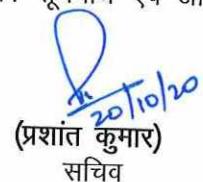 20/10/20
(प्रशांत कुमार)
सचिव